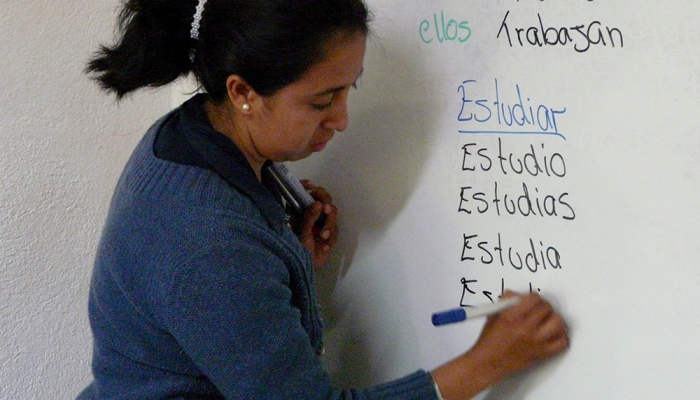 ellos Trabajan
Estudiar
Estudio
Estudias
Estudia